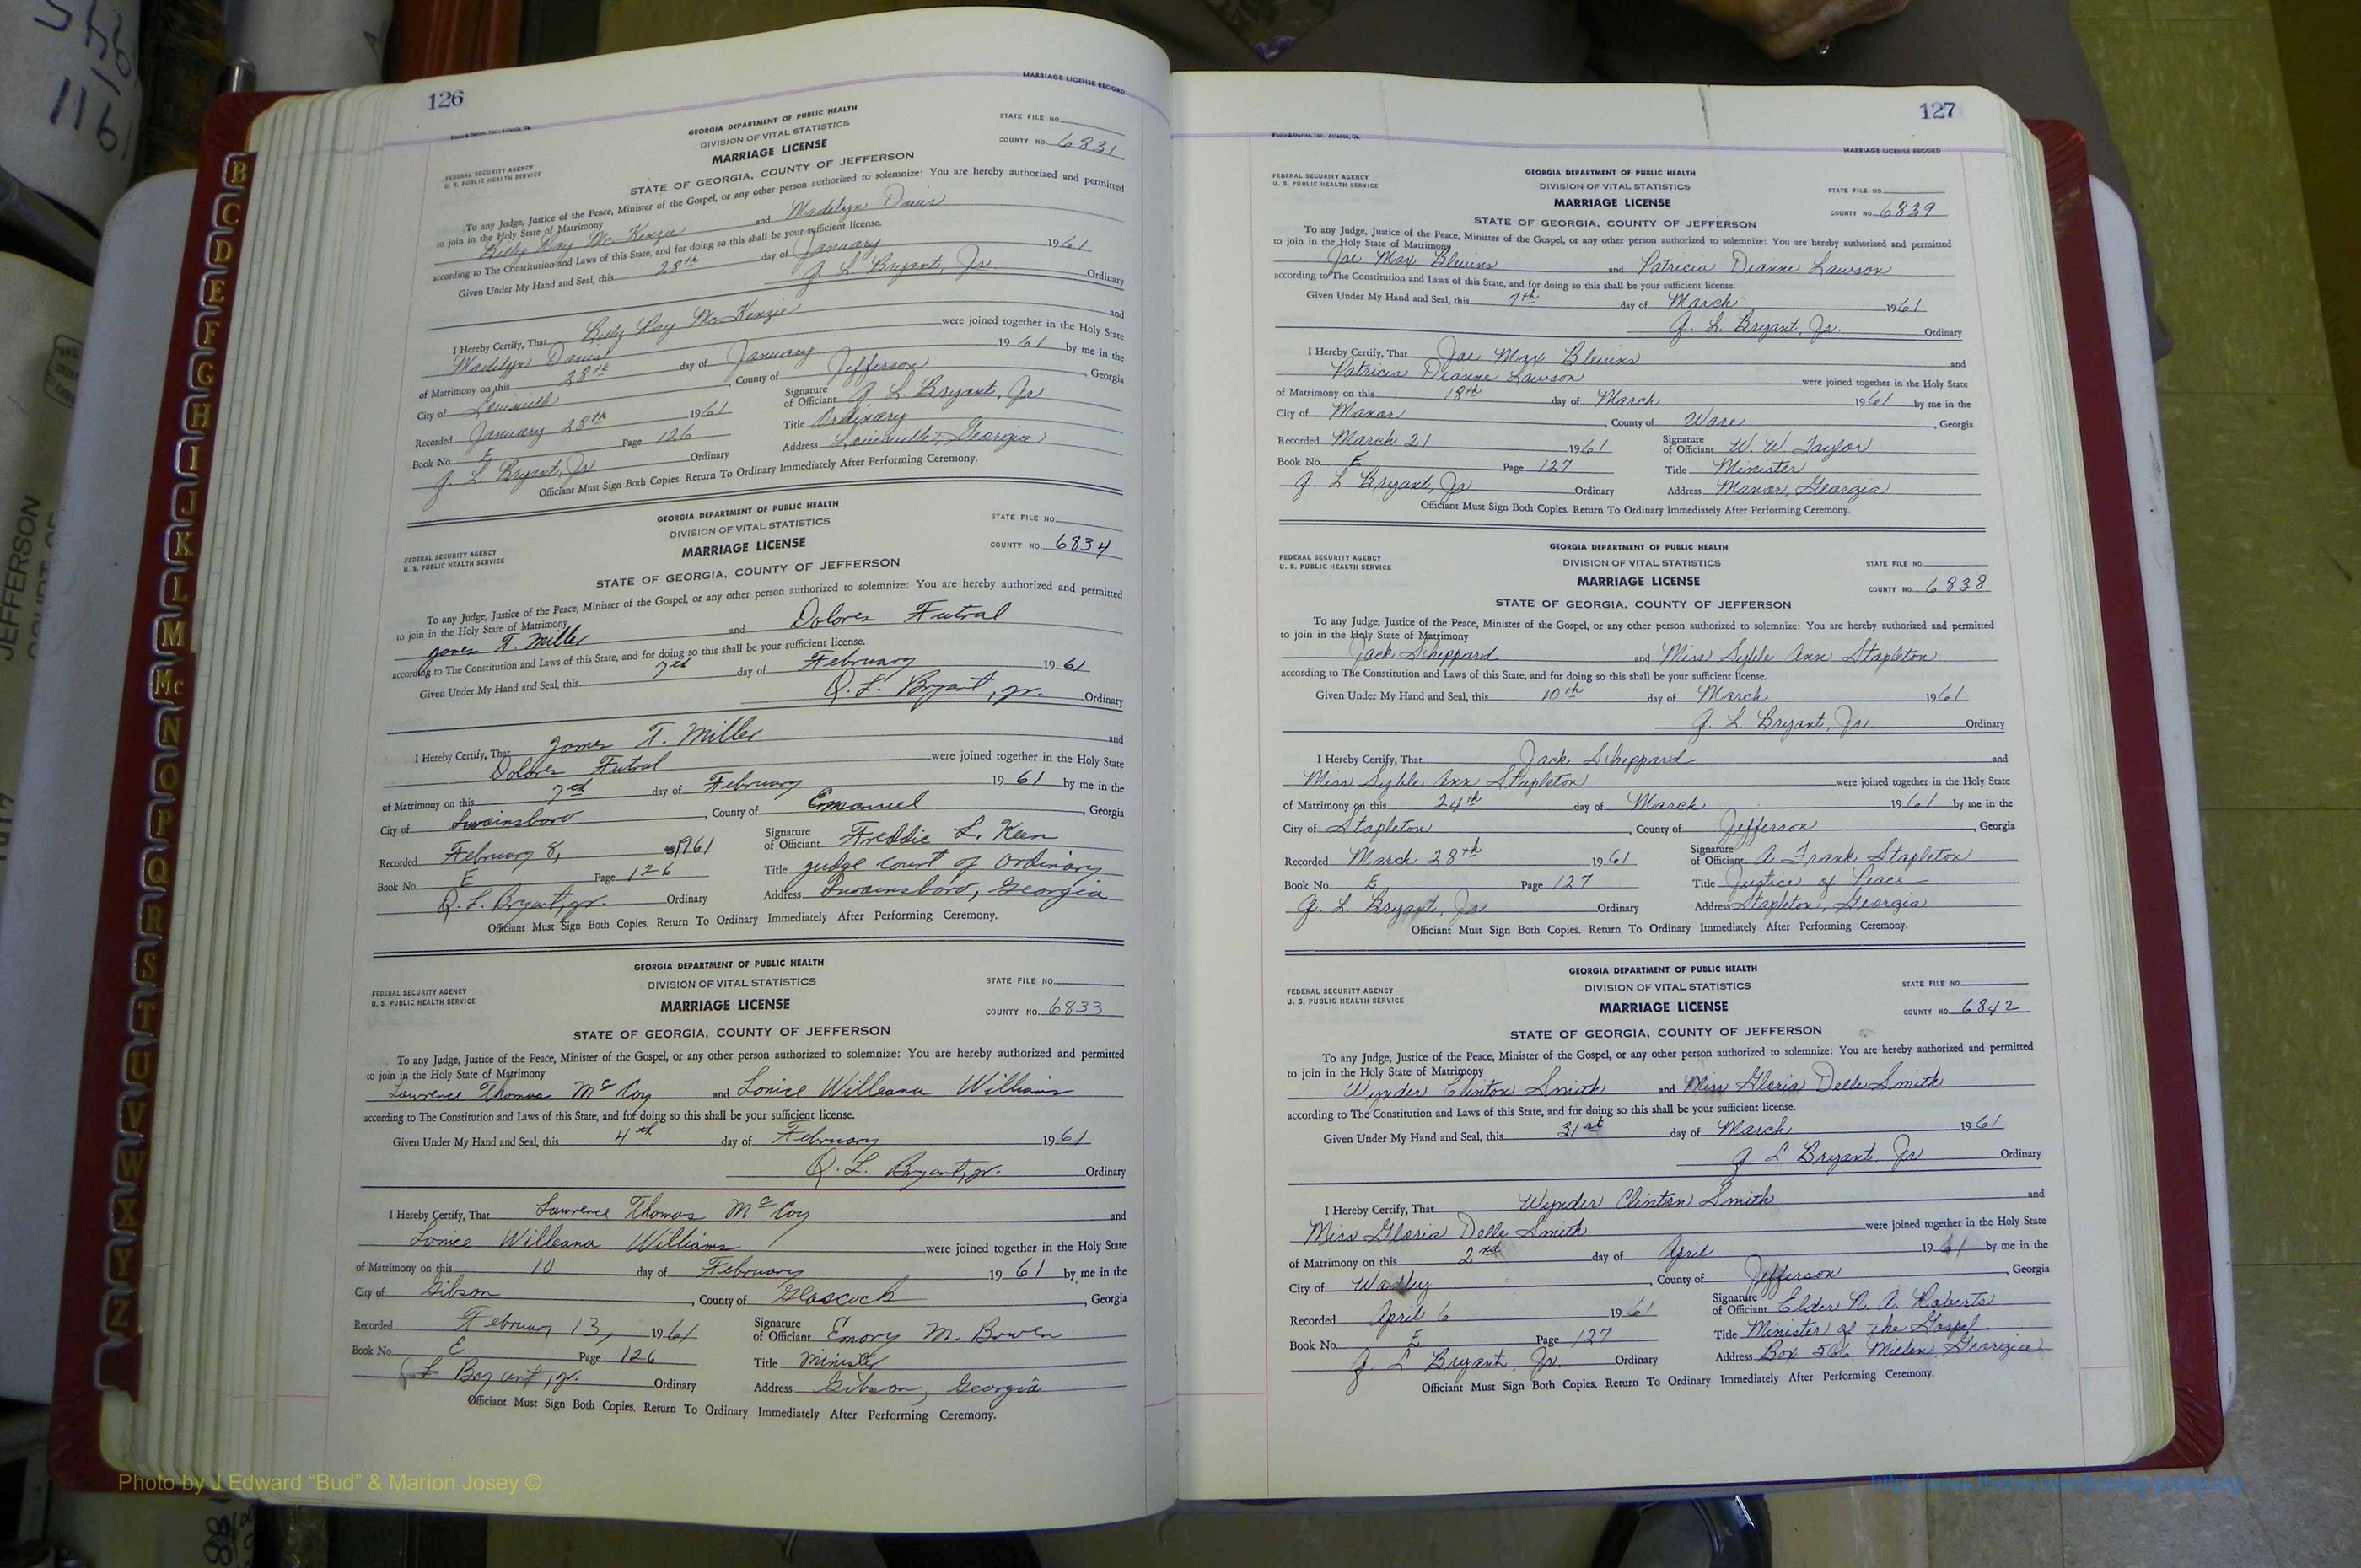 126
MARRIAGE LICENSE RECORD
GEORGIA DEPARTMENT OF PUBLIC HEALTH
DIVISION OF VITAL STATISTICS
MARRIAGE LICENSE
STATE OF GEORGIA, COUNTY OF JEFFERSON
STATE FILE NO.
COUNTY NO. 6831
FEDERAL SECURITY AGENCY
U. S. PUBLIC HEALTH SERVICE
To any Judge, Justice of the Peace, Minister of the Gospel, or any other person authorized to solemnize: You are hereby authorized and permitted
to join in the Holy State of Matrimony
Billy Ray McKenzie and Madelyn Davis
according to The Constitution and Laws of this State, and for doing so this shall be your sufficient license.
Given Under My Hand and Seal, this 28th day of January 1961
Q. L. Bryant, Jr Ordinary
I Hereby Certify, That Billy Ray McKenzie and
Madelyn Davis were joined together in the Holy State
of Matrimony on this 28th day of January 1961 by me in the
City of Louisville, County of Jefferson, Georgia
Recorded January 28th 1961 Signature of Officiant Q. L. Bryant, Jr
Book No. E Page 126 Title Ordinary
Q. L. Bryant, Jr Ordinary Address Louisville, Georgia
Officiant Must Sign Both Copies. Return To Ordinary Immediately After Performing Ceremony.
GEORGIA DEPARTMENT OF PUBLIC HEALTH
DIVISION OF VITAL STATISTICS
MARRIAGE LICENSE
STATE OF GEORGIA, COUNTY OF JEFFERSON
STATE FILE NO.
COUNTY NO. 6834
FEDERAL SECURITY AGENCY
U. S. PUBLIC HEALTH SERVICE
To any Judge, Justice of the Peace, Minister of the Gospel, or any other person authorized to solemnize: You are hereby authorized and permitted
to join in the Holy State of Matrimony
James T. Miller and Dolores Futral
according to The Constitution and Laws of this State, and for doing so this shall be your sufficient license.
Given Under My Hand and Seal, this 7th day of February 1961
Q. L. Bryant, Jr. Ordinary
I Hereby Certify, That James T. Miller and
Dolores Futral were joined together in the Holy State
of Matrimony on this 7th day of February 1961 by me in the
City of Swainsboro, County of Emanuel, Georgia
Recorded February 8, 1961 Signature of Officiant Freddie L. Keen
Book No. E Page 126 Title judge court of Ordinary
Q. L. Bryant, Jr. Ordinary Address Swainsboro, Georgia
Officiant Must Sign Both Copies. Return To Ordinary Immediately After Performing Ceremony.
GEORGIA DEPARTMENT OF PUBLIC HEALTH
DIVISION OF VITAL STATISTICS
MARRIAGE LICENSE
STATE OF GEORGIA, COUNTY OF JEFFERSON
STATE FILE NO.
COUNTY NO. 6833
FEDERAL SECURITY AGENCY
U. S. PUBLIC HEALTH SERVICE
To any Judge, Justice of the Peace, Minister of the Gospel, or any other person authorized to solemnize: You are hereby authorized and permitted
to join in the Holy State of Matrimony
Lawrence Thomas McCoy and Lonice Willeana Williams
according to The Constitution and Laws of this State, and for doing so this shall be your sufficient license.
Given Under My Hand and Seal, this 4th day of February 1961
Q. L. Bryant, Jr. Ordinary
I Hereby Certify, That Lawrence Thomas McCoy and
Lonice Willeana Williams were joined together in the Holy State
of Matrimony on this 10 day of February 1961 by me in the
City of Gibson, County of Glascock, Georgia
Recorded February 13, 1961 Signature of Officiant Emory M. Bowen
Book No. E Page 126 Title Minister
Q. L. Bryant, Jr. Ordinary Address Gibson, Georgia
Officiant Must Sign Both Copies. Return To Ordinary Immediately After Performing Ceremony.
127
MARRIAGE LICENSE RECORD
FEDERAL SECURITY AGENCY
U. S. PUBLIC HEALTH SERVICE
GEORGIA DEPARTMENT OF PUBLIC HEALTH
DIVISION OF VITAL STATISTICS
MARRIAGE LICENSE
STATE OF GEORGIA, COUNTY OF JEFFERSON
STATE FILE NO.
COUNTY NO. 6839
To any Judge, Justice of the Peace, Minister of the Gospel, or any other person authorized to solemnize: You are hereby authorized and permitted
to join in the Holy State of Matrimony
Joe Max Blevins and Patricia Dianne Lawson
according to The Constitution and Laws of this State, and for doing so this shall be your sufficient license.
Given Under My Hand and Seal, this 7th day of March 1961
Q. L. Bryant, Jr. Ordinary
I Hereby Certify, That Joe Max Blevins and
Patricia Dianne Lawson were joined together in the Holy State
of Matrimony on this 18th day of March 1961 by me in the
City of Manor, County of Ware, Georgia
Recorded March 21 1961 Signature of Officiant W. W. Taylor
Book No. E Page 127 Title Minister
Q. L. Bryant, Jr Ordinary Address Manor, Georgia
Officiant Must Sign Both Copies. Return To Ordinary Immediately After Performing Ceremony.
GEORGIA DEPARTMENT OF PUBLIC HEALTH
DIVISION OF VITAL STATISTICS
MARRIAGE LICENSE
STATE OF GEORGIA, COUNTY OF JEFFERSON
STATE FILE NO.
COUNTY NO. 6838
FEDERAL SECURITY AGENCY
U. S. PUBLIC HEALTH SERVICE
To any Judge, Justice of the Peace, Minister of the Gospel, or any other person authorized to solemnize: You are hereby authorized and permitted
to join in the Holy State of Matrimony
Jack Sheppard and Miss Syble Ann Stapleton
according to The Constitution and Laws of this State, and for doing so this shall be your sufficient license.
Given Under My Hand and Seal, this 10th day of March 1961
Q. L. Bryant, Jr. Ordinary
I Hereby Certify, That Jack Sheppard and
Miss Syble Ann Stapleton were joined together in the Holy State
of Matrimony on this 24th day of March 1961 by me in the
City of Stapleton, County of Jefferson, Georgia
Recorded March 28th 1961 Signature of Officiant A. Frank Stapleton
Book No. E Page 127 Title Justice of Peace
Q. L. Bryant, Jr Ordinary Address Stapleton, Georgia
Officiant Must Sign Both Copies. Return To Ordinary Immediately After Performing Ceremony.
GEORGIA DEPARTMENT OF PUBLIC HEALTH
DIVISION OF VITAL STATISTICS
MARRIAGE LICENSE
STATE OF GEORGIA, COUNTY OF JEFFERSON
STATE FILE NO.
COUNTY NO. 6842
FEDERAL SECURITY AGENCY
U. S. PUBLIC HEALTH SERVICE
To any Judge, Justice of the Peace, Minister of the Gospel, or any other person authorized to solemnize: You are hereby authorized and permitted
to join in the Holy State of Matrimony
Wynder Clinton Smith and Miss Gloria Delle Smith
according to The Constitution and Laws of this State, and for doing so this shall be your sufficient license.
Given Under My Hand and Seal, this 31st day of March 1961
Q. L Bryant, Jr Ordinary
I Hereby Certify, That Wynder Clinton Smith and
Miss Gloria Delle Smith were joined together in the Holy State
of Matrimony on this 2nd day of April 1961 by me in the
City of Wadley, County of Jefferson, Georgia
Recorded April 6 1961 Signature of Officiant Elder N. A. Roberts
Book No. E Page 127 Title Minister of the Gospel
Q. L Bryant, Jr. Ordinary Address Box 566, Millen, Georgia
Officiant Must Sign Both Copies. Return To Ordinary Immediately After Performing Ceremony.
B
C
D
E
F
G
H
I
J
K
L
M
Mc
N
O
P
Q
R
S
T
U
V
W
X
Y
Z
JEFFERSON
Photo by J Edward “Bud” & Marion Josey ©